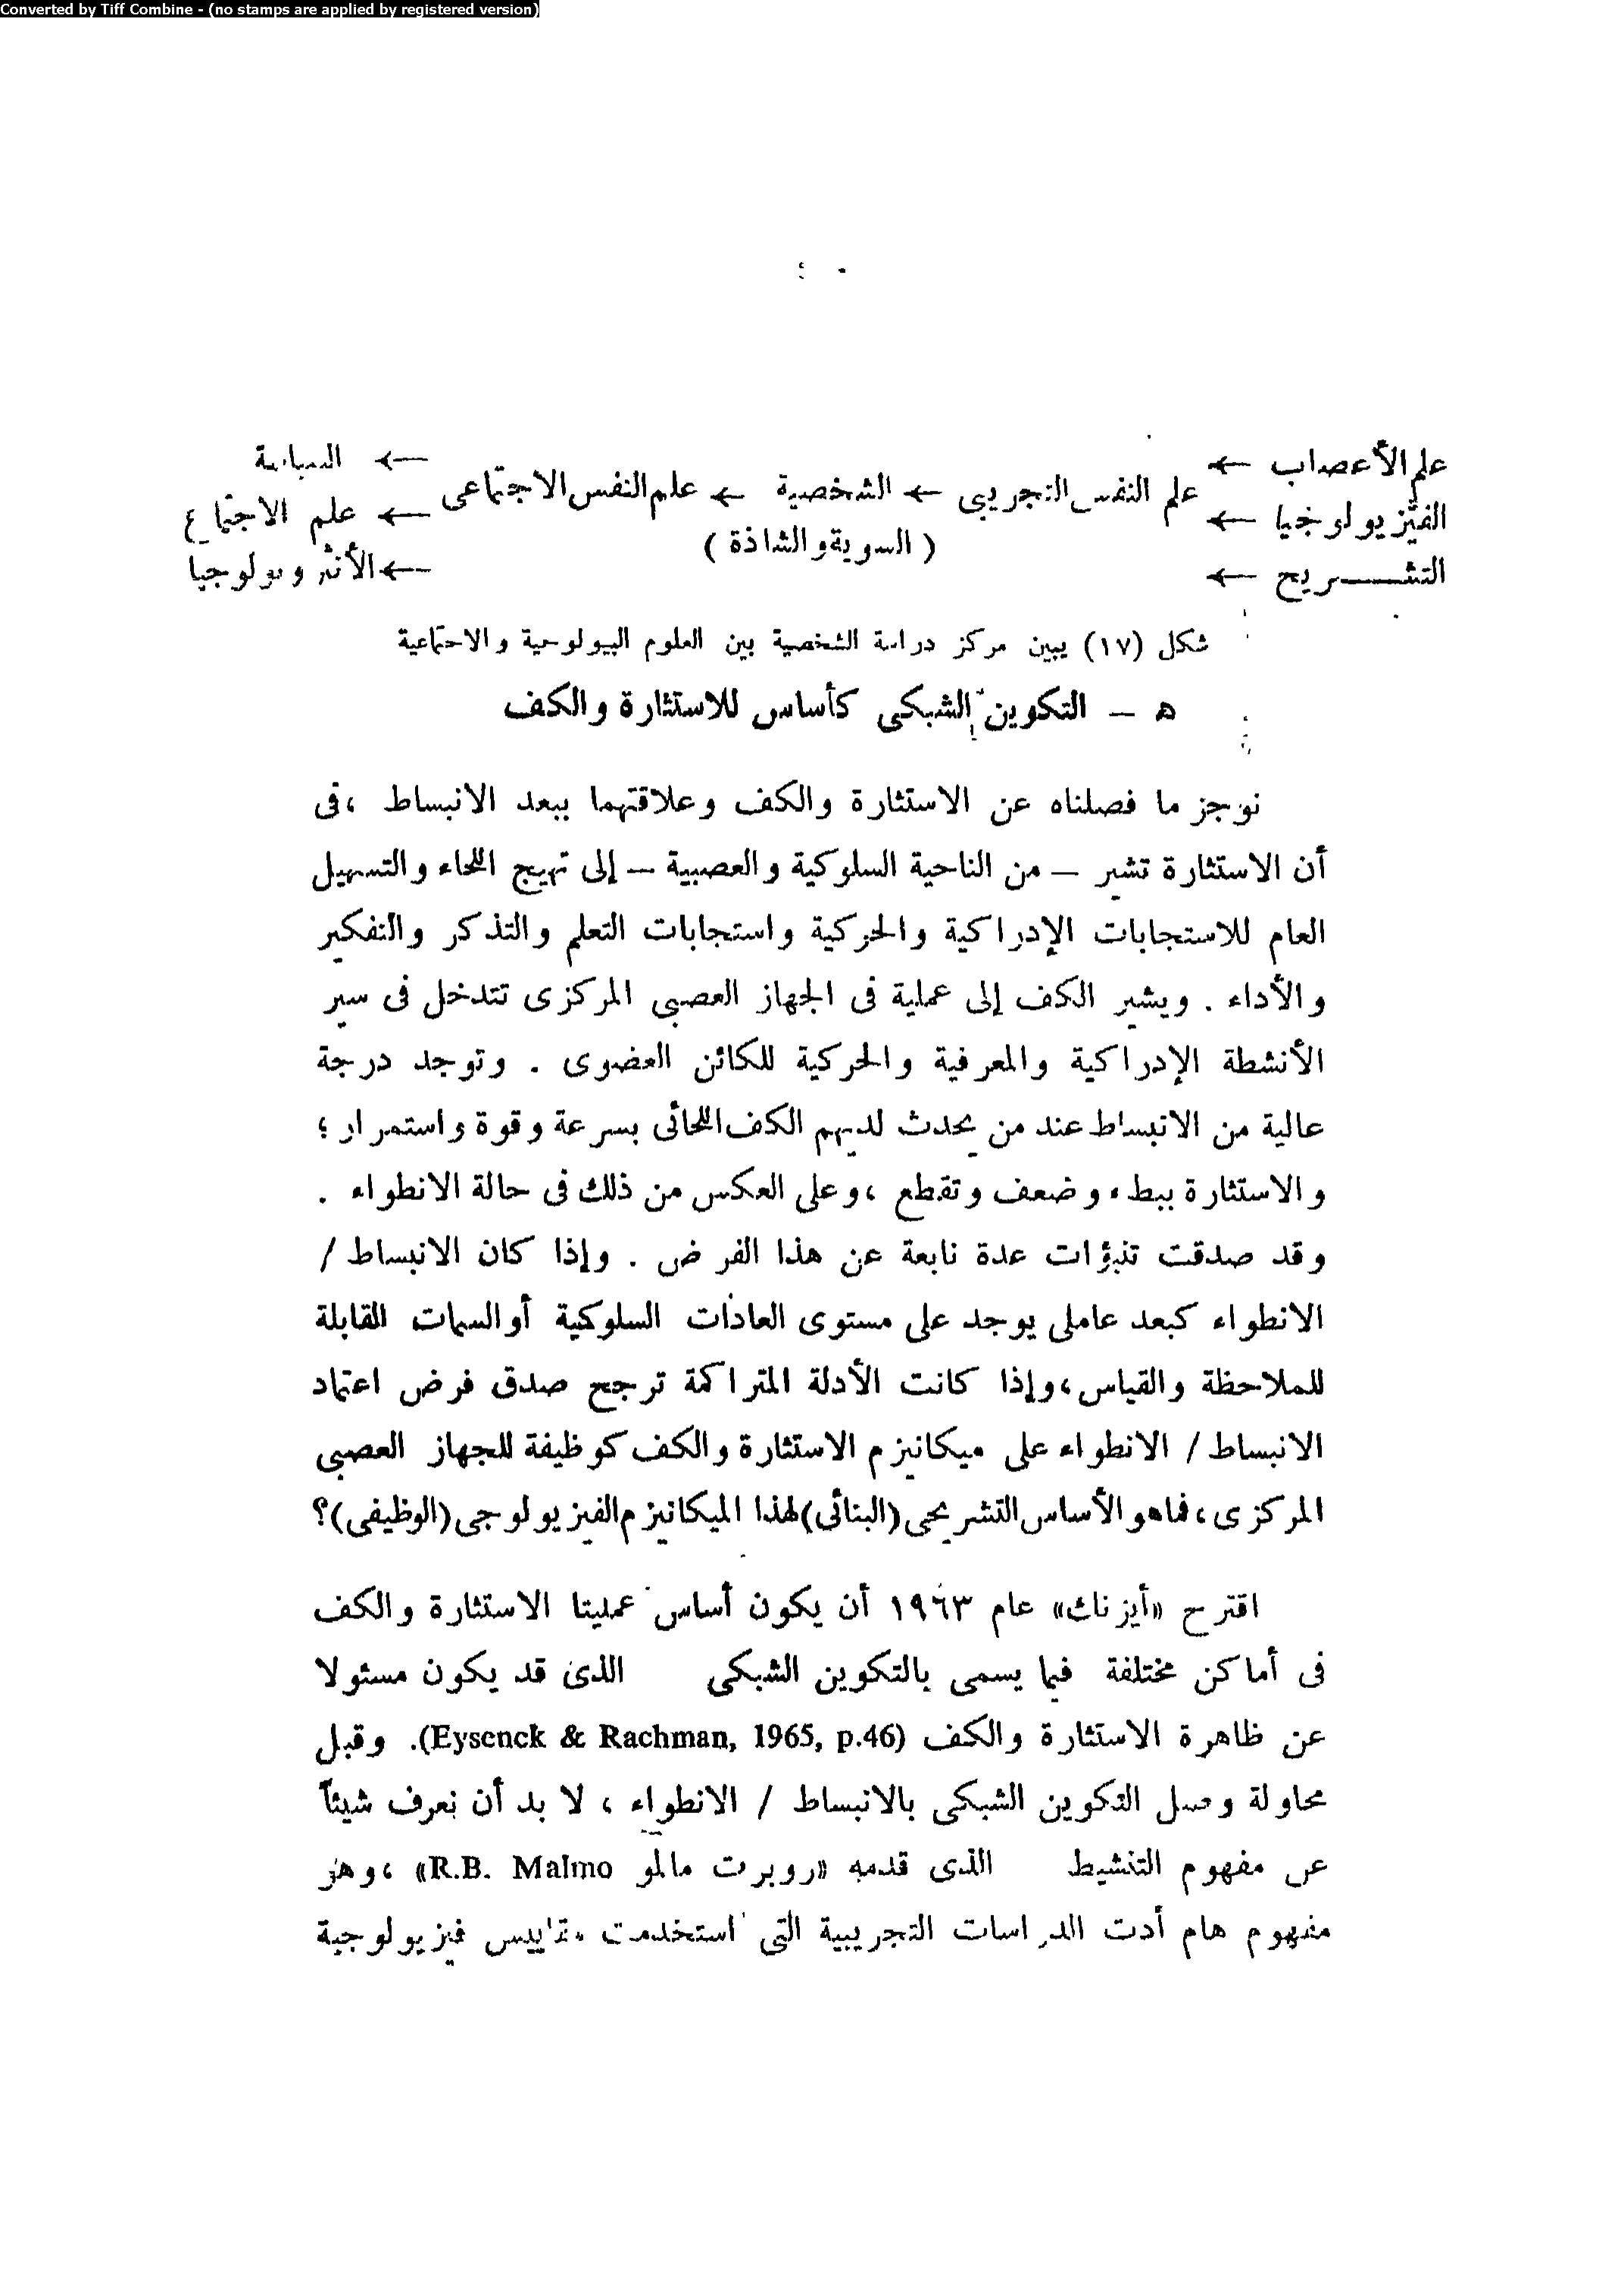 Converted by Tiff Combine - (no stamps are applied by registered version)
علم الأعصاب ← علم النفس التجريبى ← الشخصية ← علم النفس الاجتماعى ← السياسة
الفيزيولوجيا ← (السوية والشاذة) ← علم الاجتماع
التشـــريح ← ← الأنثروبولوجيا
شكل (١٧) يبين مركز دراسة الشخصية بين العلوم البيولوجية والاجتماعية
ه – التكوين الشبكى كأساس للاستثارة والكف
نوجز ما فصلناه عن الاستثارة والكف وعلاقتهما ببعد الانبساط ، فى
أن الاستثارة تشير – من الناحية السلوكية والعصبية – إلى تهيج اللحاء والتسهيل
العام للاستجابات الإدراكية والحركية واستجابات التعلم والتذكر والتفكير
والأداء . ويشير الكف إلى عملية فى الجهاز العصبى المركزى تتدخل فى سير
الأنشطة الإدراكية والمعرفية والحركية للكائن العضوى . وتوجد درجة
عالية من الانبساط عند من يحدث لديهم الكف اللحائى بسرعة وقوة واستمرار ؛
والاستثارة ببطء وضعف وتقطع ، وعلى العكس من ذلك فى حالة الانطواء .
وقد صدقت تنبؤات عدة نابعة عن هذا الفرض . وإذا كان الانبساط /
الانطواء كبعد عاملى يوجد على مستوى العادات السلوكية أو السمات القابلة
للملاحظة والقياس ، وإذا كانت الأدلة المتراكمة ترجح صدق فرض اعتماد
الانبساط / الانطواء على ميكانيزم الاستثارة والكف كوظيفة للجهاز العصبى
المركزى ، فما هو الأساس التشريحى (البنائى) لهذا الميكانيزم الفيزيولوجى (الوظيفى) ؟
اقترح «أيزنك» عام ١٩٦٣ أن يكون أساس عمليتا الاستثارة والكف
فى أماكن مختلفة فيما يسمى بالتكوين الشبكى الذى قد يكون مسئولا
عن ظاهرة الاستثارة والكف (Eysenck & Rachman, 1965, p.46). وقبل
محاولة وصل التكوين الشبكى بالانبساط / الانطواء ، لا بد أن نعرف شيئاً
عن مفهوم التنشيط الذى قدمه «روبرت مالمو R.B. Malmo» ، وهو
مفهوم هام أدت الدراسات التجريبية التى استخدمت مقاييس فيزيولوجية